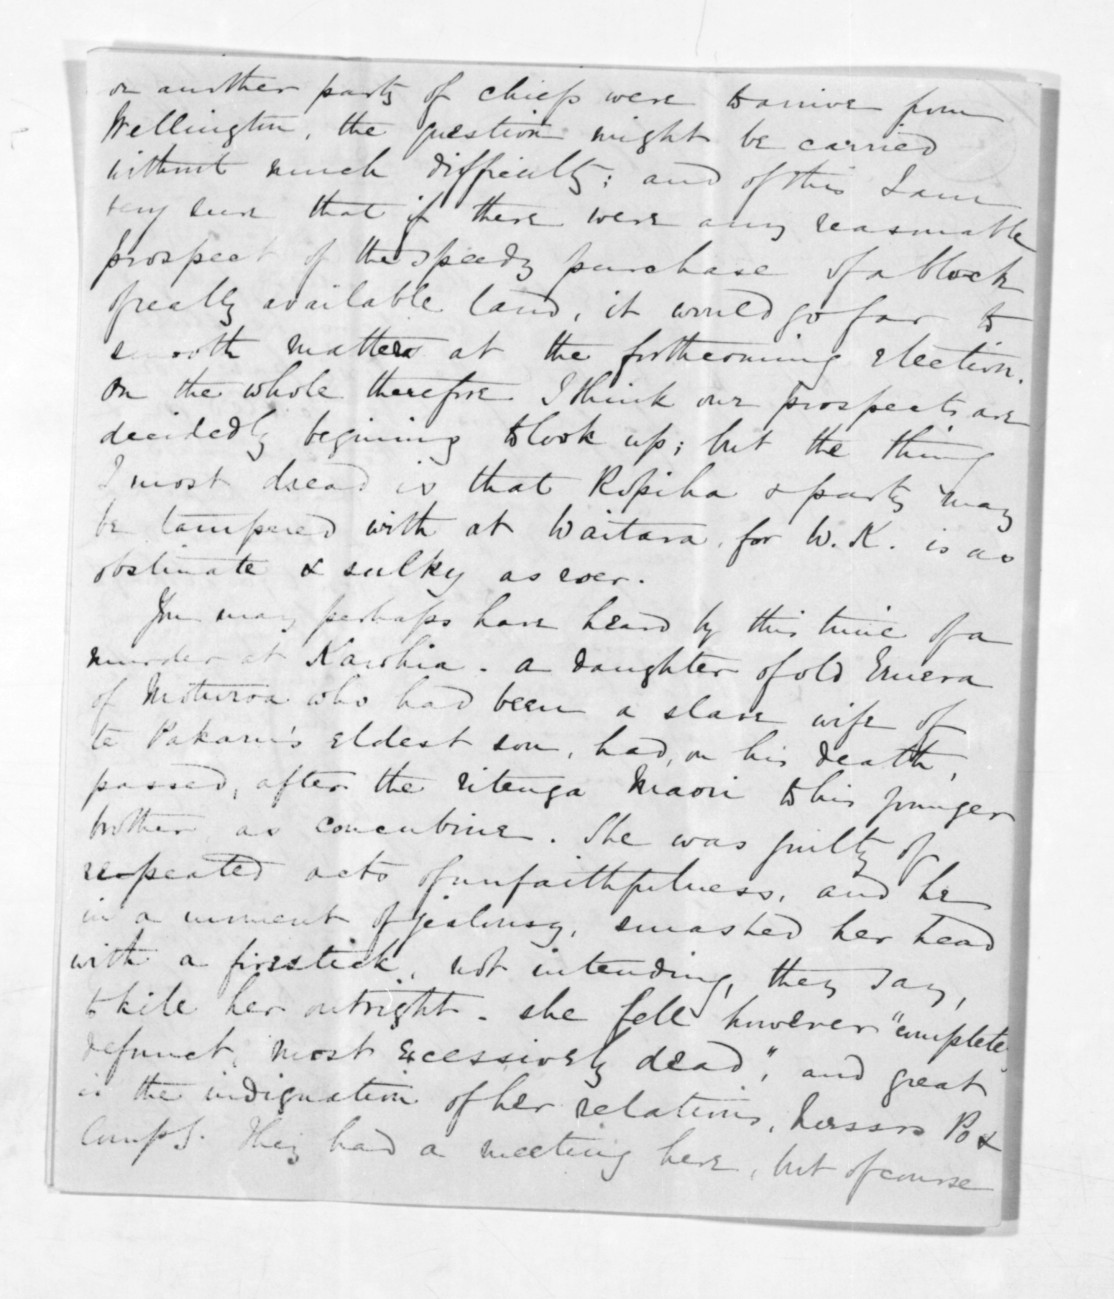 or another party of chiefs were to arrive from
Wellington, the question might be carried
without much difficulty; and of this I am
very sure that if there were any reasonable
prospect of the speedy purchase of a block
of really available land, it would go far to
smooth matters at the forthcoming election.
On the whole therefore I think our prospects are
decidedly begining to look up; but the thing
I most dread is that Ropiha & party may
be tampered with at Waitara, for W.K. is as
obstinate & sulky as ever.
You may perhaps have heard by this time of a
murder at Kawhia. a daughter of old Eruera
of Moturoa who had been a slave wife of
te Pakaru's eldest son, had, on his death,
passed, after the ritenga Maori to his younger
brother as concubine. She was guilty of
repeated acts of unfaithfulness, and he
in a moment of jealousy, smashed her head
with a firestick, not intending, they say,
to kill her outright. she fell however "complete
defunct, most excessively dead", and great
is the indignation of her relations, Messrs Po &
Comp?. They had a meeting here, but of course